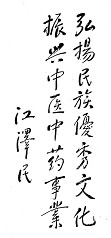 弘揚民族優秀文化
振兴中医中药事業
江澤民